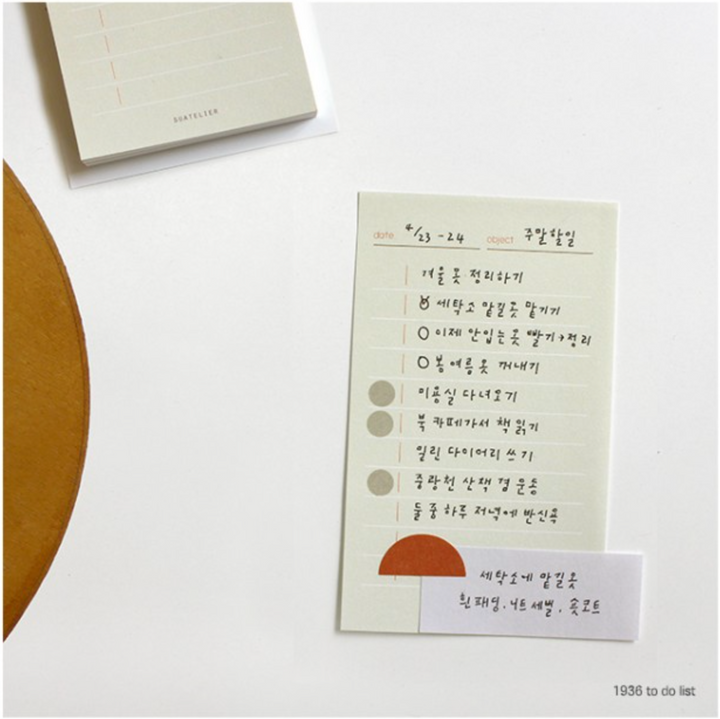 DUATELIER
date 4/23 - 24 object 주말할일
겨울 옷 정리하기
세탁소 맡길옷 맡기기
이제 안입는옷 빨기→정리
봄여름옷 꺼내기
미용실 다녀오기
북카페가서 책읽기
밀린 다이어리 쓰기
중랑천 산책 겸 운동
둘중하루 저녁에 반신욕
세탁소에 맡길옷
흰패딩, 니트세벌, 숏코트
1936 to do list